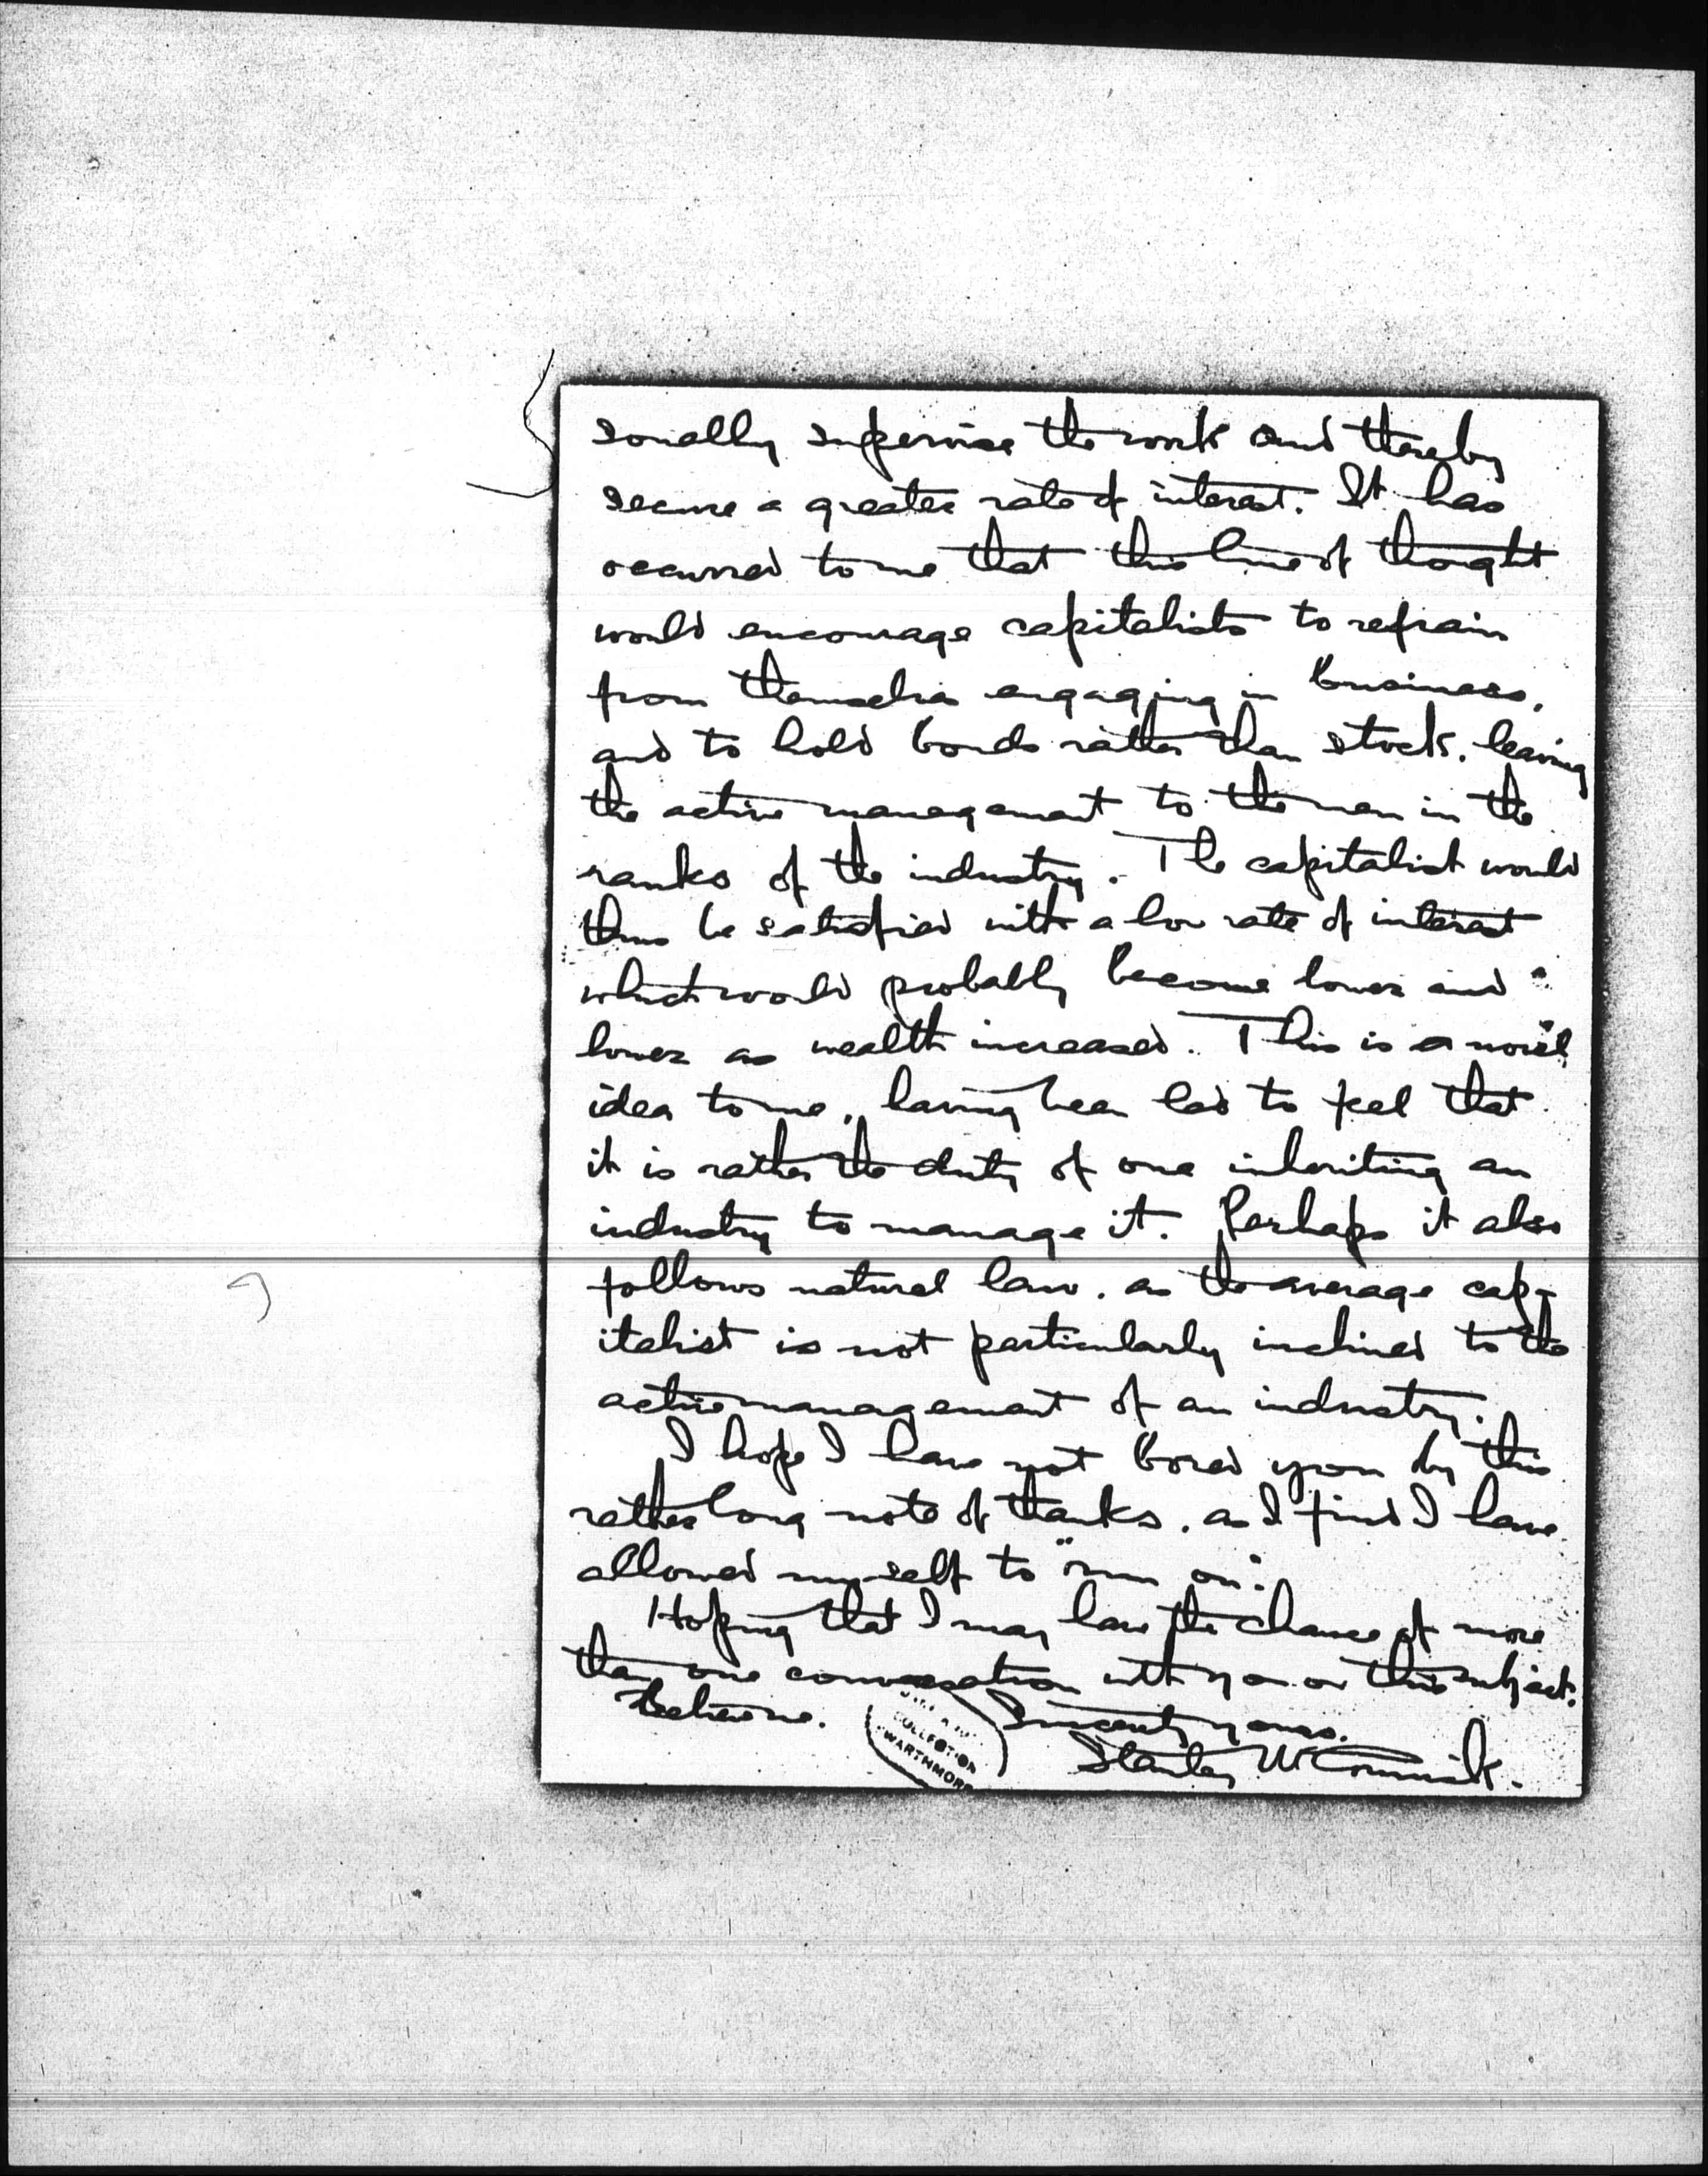 sonally supervise the work and thereby
secure a greater rate of interest. It has
occurred to me that this line of thought
would encourage capitalists to refrain
from themselves engaging in business,
and to hold bonds rather than stock, leaving
the active management to the men in the
ranks of the industry. The capitalist would
thus be satisfied with a low rate of interest
which would probably become lower and
lower as wealth increased. This is a novel
idea to me, having been led to feel that
it is rather the duty of one inheriting an
industry to manage it. Perhaps it also
follows natural law, as the average cap-
italist is not particularly inclined to the
active management of an industry.
I hope I have not bored you by this
rather long note of thanks, as I find I have
allowed myself to "run on".
Hoping that I may have the chance of more
than one conversation with you on this subject.
Believe me.
Sincerely yours,
Stanley McCormick.
COLLECTION
SWARTHMORE